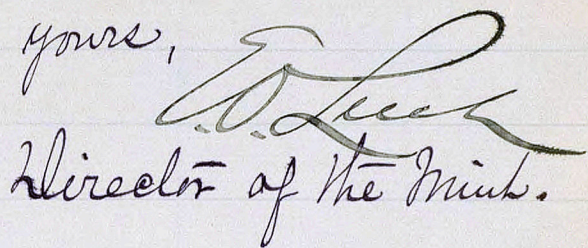 yours,
E.O. Leech
Director of the Mint.